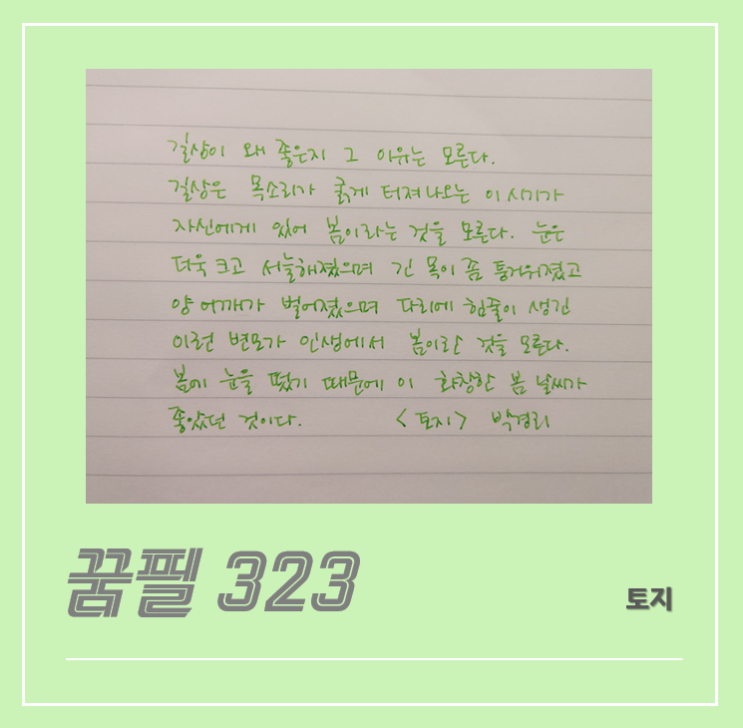 길상이 왜 좋은지 그 이유는 모른다.
길상은 목소리가 굵게 터져나오는 이 시기가
자신에게 있어 봄이라는 것을 모른다. 눈은
더욱 크고 서늘해졌으며 긴 목이 좀 퉁거워졌고
양 어깨가 벌어졌으며 다리에 힘줄이 생긴
이런 변모가 인생에서 봄이란 것을 모른다.
봄에 눈을 떴기 때문에 이 화창한 봄 날씨가
좋았던 것이다. <토지> 박경리
꿈필 323
토지